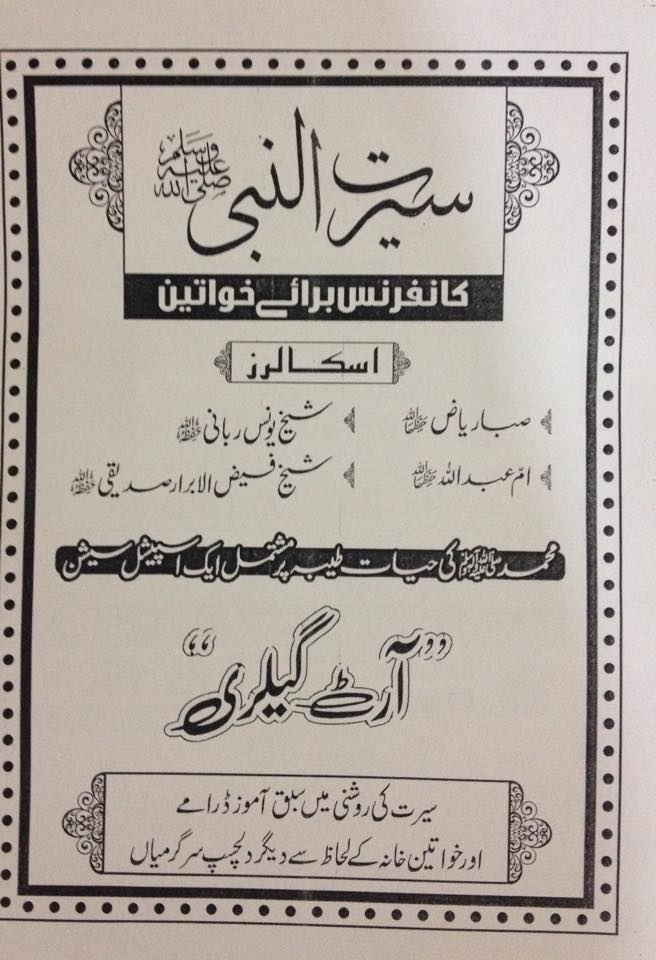 سیرت النبی صلی اللہ علیہ وسلم
کانفرنس برائے خواتین
اسکالرز
صبا ریاض حفظہا اللہ
شیخ یونس ربانی حفظہ اللہ
امّ عبداللہ حفظہا اللہ
شیخ فیض الابرار صدیقی حفظہ اللہ
محمد صلی اللہ علیہ وسلم کی حیات طیبہ پر مشتمل ایک اسپیشل سیشن
”آرٹ گیلری“
سیرت کی روشنی میں سبق آموز ڈرامے
اور خواتین خانہ کے لحاظ سے دیگر دلچسپ سرگرمیاں